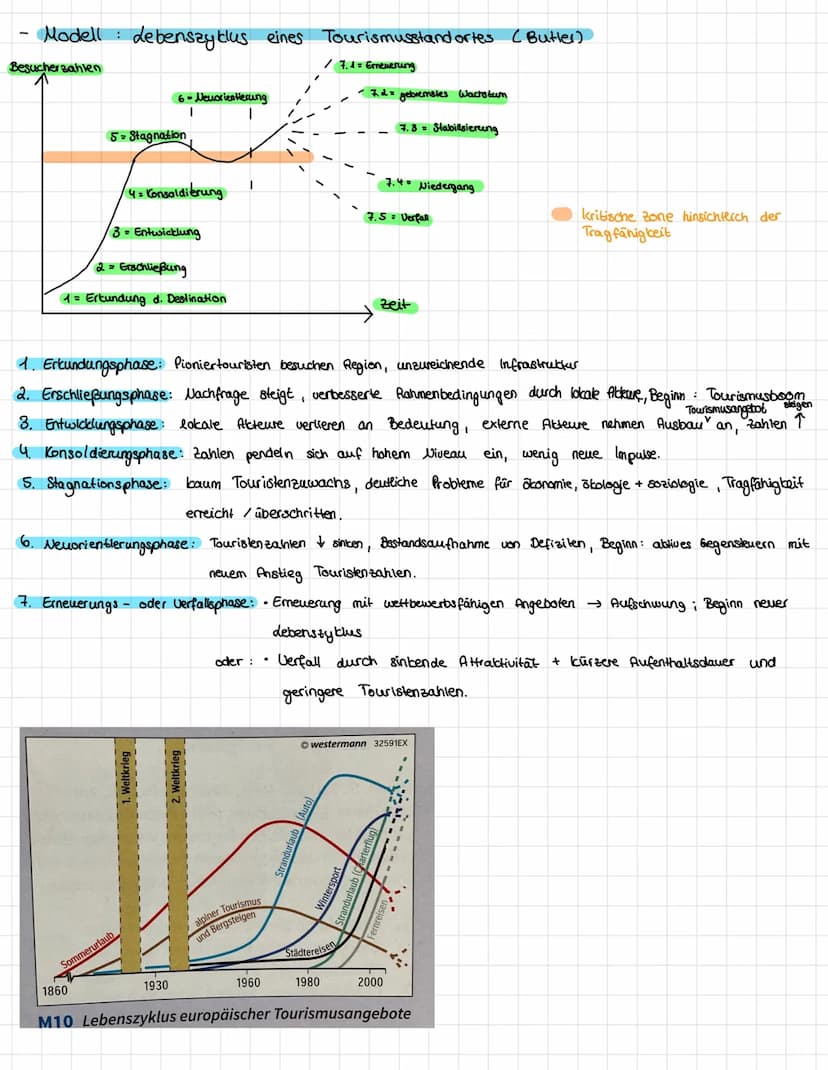 - Modell : Lebenszyklus eines Tourismusstandortes (Butler)
Besucherzahlen
7.1 = Erneuerung
7.2 = gebremstes Wachstum
6 = Neuorientierung
7.3 = Stabilisierung
5 = Stagnation
7.4 = Niedergang
4 = Konsoldierung
7.5 = Verfall
kritische Zone hinsichtlich der
Tragfähigkeit
3 = Entwicklung
2 = Erschließung
1 = Erkundung d. Destination
Zeit
1. Erkundungsphase: Pioniertouristen besuchen Region, unzureichende Infrastruktur
2. Erschließungsphase: Nachfrage steigt, verbesserte Rahmenbedingungen durch lokale Akteure, Beginn : Tourismusboom
Tourismusangebot steigen
3. Entwicklungsphase: lokale Akteure verlieren an Bedeutung, externe Akteure nehmen Ausbau ˅ an, Zahlen ↑
4. Konsoldierungsphase: Zahlen pendeln sich auf hohem Niveau ein, wenig neue Impulse.
5. Stagnationsphase: kaum Touristenzuwachs, deutliche Probleme für Ökonomie, Ökologie + Soziologie, Tragfähigkeit
erreicht / überschritten.
6. Neuorientierungsphase: Touristenzahlen ↓ sinken, Bestandsaufnahme von Defiziten, Beginn: aktives Gegensteuern mit
neuem Anstieg Touristenzahlen.
7. Erneuerungs- oder Verfallsphase: • Erneuerung mit wettbewerbsfähigen Angeboten → Aufschwung ; Beginn neuer
Lebenszyklus
oder : • Verfall durch sinkende Attraktivität + kürzere Aufenthaltsdauer und
geringere Touristenzahlen.
© westermann 32591EX
1. Weltkrieg
2. Weltkrieg
Strandurlaub (Auto)
Wintersport
Strandurlaub (Charterflug)
alpiner Tourismus
und Bergsteigen
Fernreisen
Sommerurlaub
Städtereisen
1860
1930
1960
1980
2000
M10 Lebenszyklus europäischer Tourismusangebote